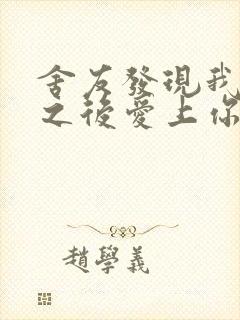 舍友發現我
之後愛上你
趙學義